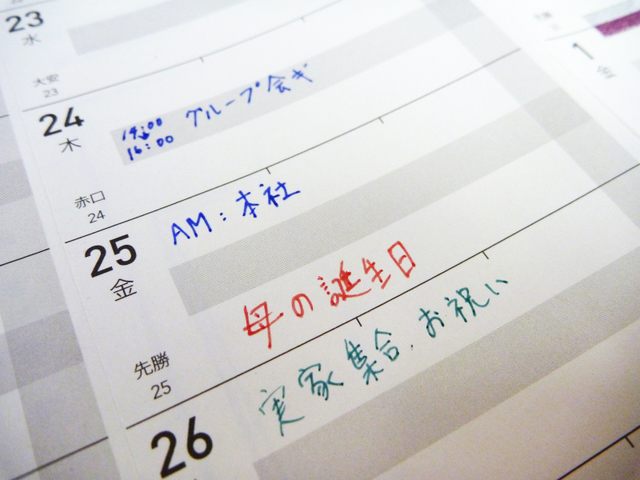 23
水
大安
23
24
木
14:00
16:00
グループ会ギ
赤口
24
25
金
AM:本社
母の誕生日
先勝
25
26
実家集合、お祝い
1
金